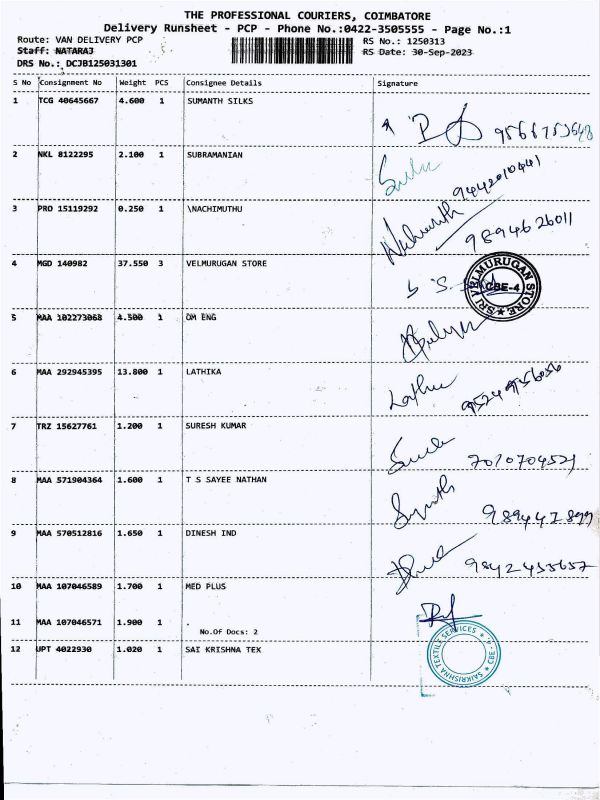 THE PROFESSIONAL COURIERS, COIMBATORE
Delivery Runsheet - PCP - Phone No.:0422-3505555 - Page No.:1
Route: VAN DELIVERY PCP RS No.: 1250313
Staff: NATARAJ RS Date: 30-Sep-2023
DRS No.: DCJB125031301
S No Consignment No Weight PCS Consignee Details Signature
1 TCG 40645667 4.600 1 SUMANTH SILKS
2 NKL 8122295 2.100 1 SUBRAMANIAN
9442010441
3 PRO 15119292 0.250 1 \NACHIMUTHU
9894626011
4 MGD 140982 37.550 3 VELMURUGAN STORE
SRI VELMURUGAN STORE CBE-4
5 MAA 102273068 4.500 1 OM ENG
6 MAA 292945395 13.800 1 LATHIKA
7 TRZ 15627761 1.200 1 SURESH KUMAR
7010704521
8 MAA 571904364 1.600 1 T S SAYEE NATHAN
9 MAA 570512816 1.650 1 DINESH IND
10 MAA 107046589 1.700 1 MED PLUS
11 MAA 107046571 1.900 1 .
No.Of Docs: 2
12 UPT 4022930 1.020 1 SAI KRISHNA TEX
SAIKRISHNA TEXTILE SERVICES CBE